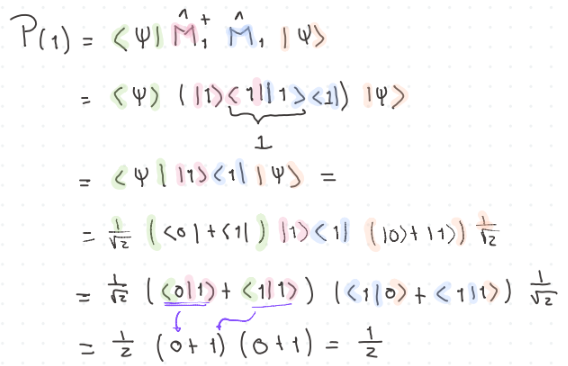 P(1) = ⟨Ψ| M̂₁⁺ M̂₁ |Ψ⟩
= ⟨Ψ⟩ (|1⟩⟨1||1⟩⟨1|) |Ψ⟩
1
= ⟨Ψ| |1⟩⟨1| |Ψ⟩ =
= 1/√2 (⟨0|+⟨1|) |1⟩⟨1| (|0⟩+|1⟩) 1/√2
= 1/√2 (⟨0|1⟩ + ⟨1|1⟩) (⟨1|0⟩ + ⟨1|1⟩) 1/√2
= 1/2 (0+1) (0+1) = 1/2